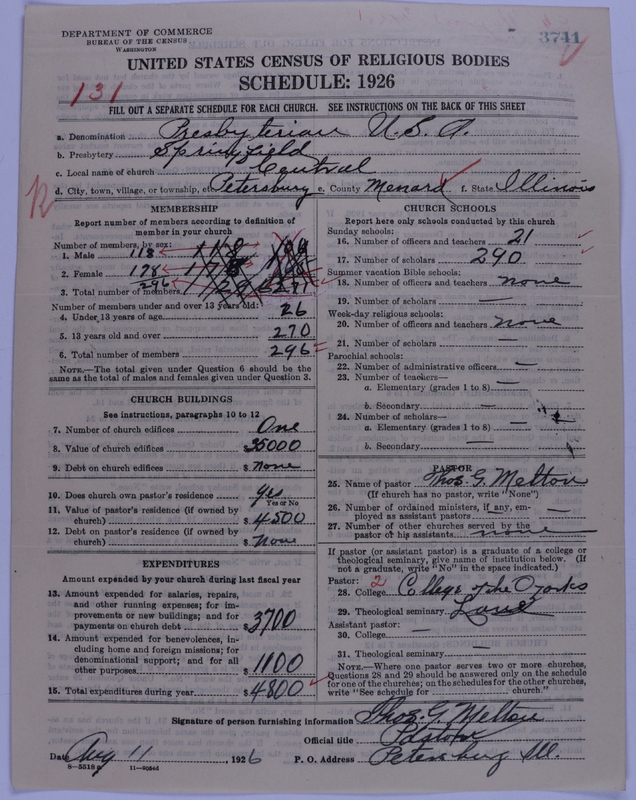 DEPARTMENT OF COMMERCE
BUREAU OF THE CENSUS
WASHINGTON
3741
UNITED STATES CENSUS OF RELIGIOUS BODIES
SCHEDULE: 1926
131
FILL OUT A SEPARATE SCHEDULE FOR EACH CHURCH. SEE INSTRUCTIONS ON THE BACK OF THIS SHEET
a. Denomination Presbyterian U.S.A.
b. Presbytery Springfield
c. Local name of church Central
d. City, town, village, or township, etc Petersburg e. County Menard f. State Illinois
MEMBERSHIP
Report number of members according to definition of
member in your church
Number of members, by sex:
1. Male 118
2. Female 178
3. Total number of members 296
Number of members under and over 13 years old:
4. Under 13 years of age 26
5. 13 years old and over 270
6. Total number of members 296
NOTE.—The total given under Question 6 should be
same as the total of males and females given under Question 3.
CHURCH BUILDINGS
See instructions, paragraphs 10 to 12
7. Number of church edifices One
8. Value of church edifices $ 35000
9. Debt on church edifices $ None
10. Does church own pastor's residence yes
Yes or No
11. Value of pastor's residence (if owned by
church) $ 4500
12. Debt on pastor's residence (if owned by
church) $ None
EXPENDITURES
Amount expended by your church during last fiscal year
13. Amount expended for salaries, repairs,
and other running expenses; for im-
provements or new buildings; and for
payments on church debt $ 3700
14. Amount expended for benevolences, in-
cluding home and foreign missions; for
denominational support; and for all
other purposes $ 1100
15. Total expenditures during year $ 4800
CHURCH SCHOOLS
Report here only schools conducted by this church
Sunday schools:
16. Number of officers and teachers 21
17. Number of scholars 290
Summer vacation Bible schools:
18. Number of officers and teachers none
19. Number of scholars —
Week-day religious schools:
20. Number of officers and teachers none
21. Number of scholars —
Parochial schools:
22. Number of administrative officers —
23. Number of teachers—
a. Elementary (grades 1 to 8) —
b. Secondary —
24. Number of scholars—
a. Elementary (grades 1 to 8) —
b. Secondary —
PASTOR
25. Name of pastor Thos. G. Melton
(If church has no pastor, write "None")
26. Number of ordained ministers, if any, em-
ployed as assistant pastors —
27. Number of other churches served by the
pastor or his assistants none
If pastor (or assistant pastor) is a graduate of a college or
theological seminary, give name of institution below. (If
not a graduate, write "No" in the space indicated.)
Pastor: 2
28. College College of the Ozarks
29. Theological seminary Lane
Assistant pastor:
30. College —
31. Theological seminary —
NOTE.—Where one pastor serves two or more churches,
Questions 28 and 29 should be answered only on the schedule
for one of the churches; on the schedules for the other churches,
write "See schedule for church."
Signature of person furnishing information Thos. G. Melton
Official title Pastor
Date Aug 11, 1926 P. O. Address Petersburg Ill.